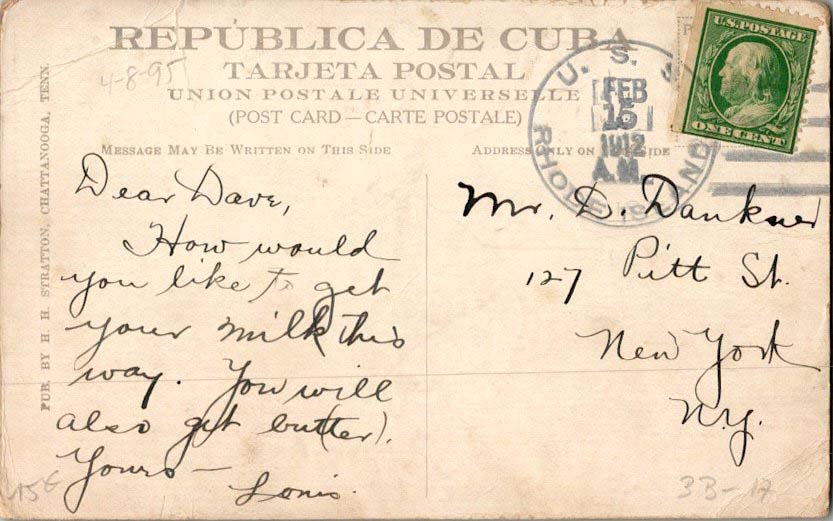 REPÚBLICA DE CUBA
TARJETA POSTAL
UNION POSTALE UNIVERSELLE
(POST CARD — CARTE POSTALE)
4-8-95
MESSAGE MAY BE WRITTEN ON THIS SIDE
ADDRESS ONLY ON SIDE
PUB. BY H. H. STRATTON, CHATTANOOGA, TENN.
U. S. S.
FEB
15
1912
A.M.
RHODE ISLAND
U.S. POSTAGE
ONE CENT
Dear Dave,
How would
you like to get
your milk (this
way. You will
also get but(ter).
Yours —
Louis.
Mr. D. Dankner
127 Pitt St.
New York
N.Y.
15¢
33-17